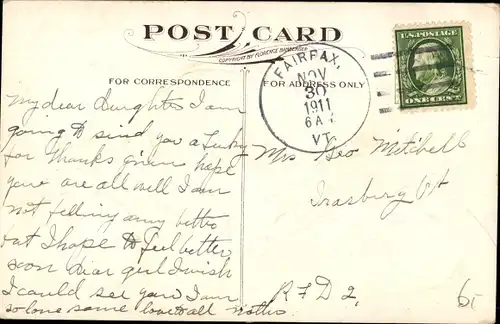 POST CARD
COPYRIGHT BY FLORENCE BAMBERGER
FOR CORRESPONDENCE
FOR ADDRESS ONLY
FAIRFAX,
NOV
30
1911
6 A
VT.
U.S. POSTAGE
ONE CENT
My dear daughter I am
going to send you a Turky
for Thanks given hope
you are all well I am
not felling any better
out I hope to feel better
soon dear girl I wish
I could see you I am
so lone some love to all mother
Mrs Geo Mitchell
Irasburg Vt
RFD 2,